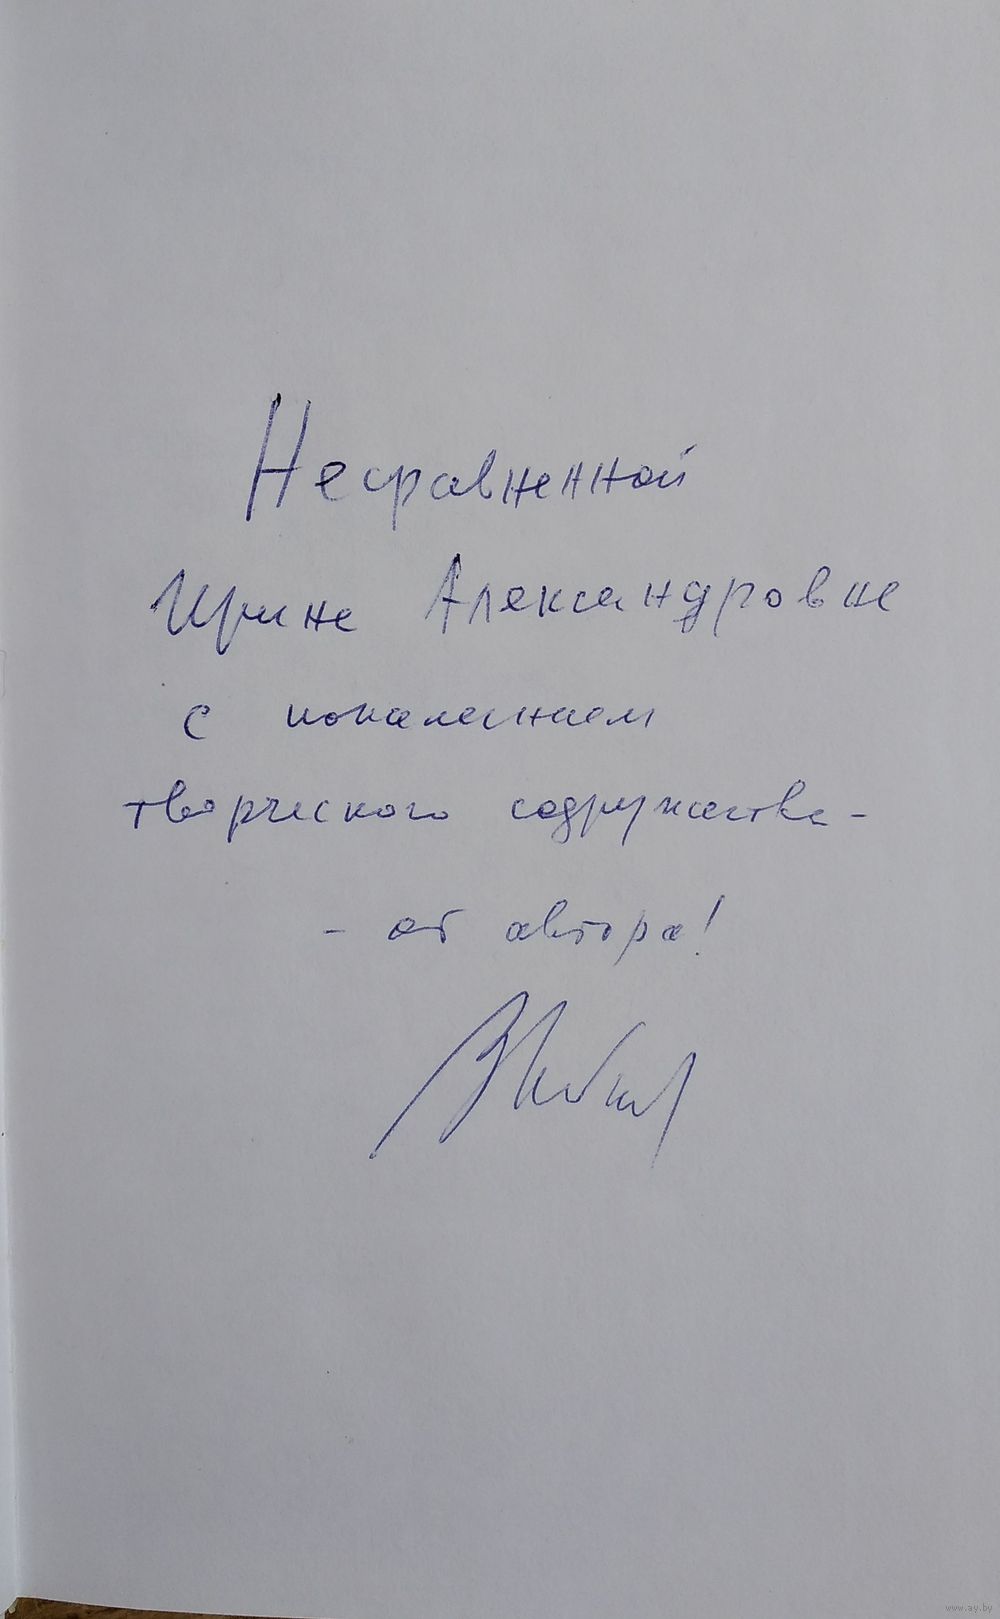 Несравненной
Ирине Александровне
с пожеланием
творческого содружества -
- от автора!
www.ay.by